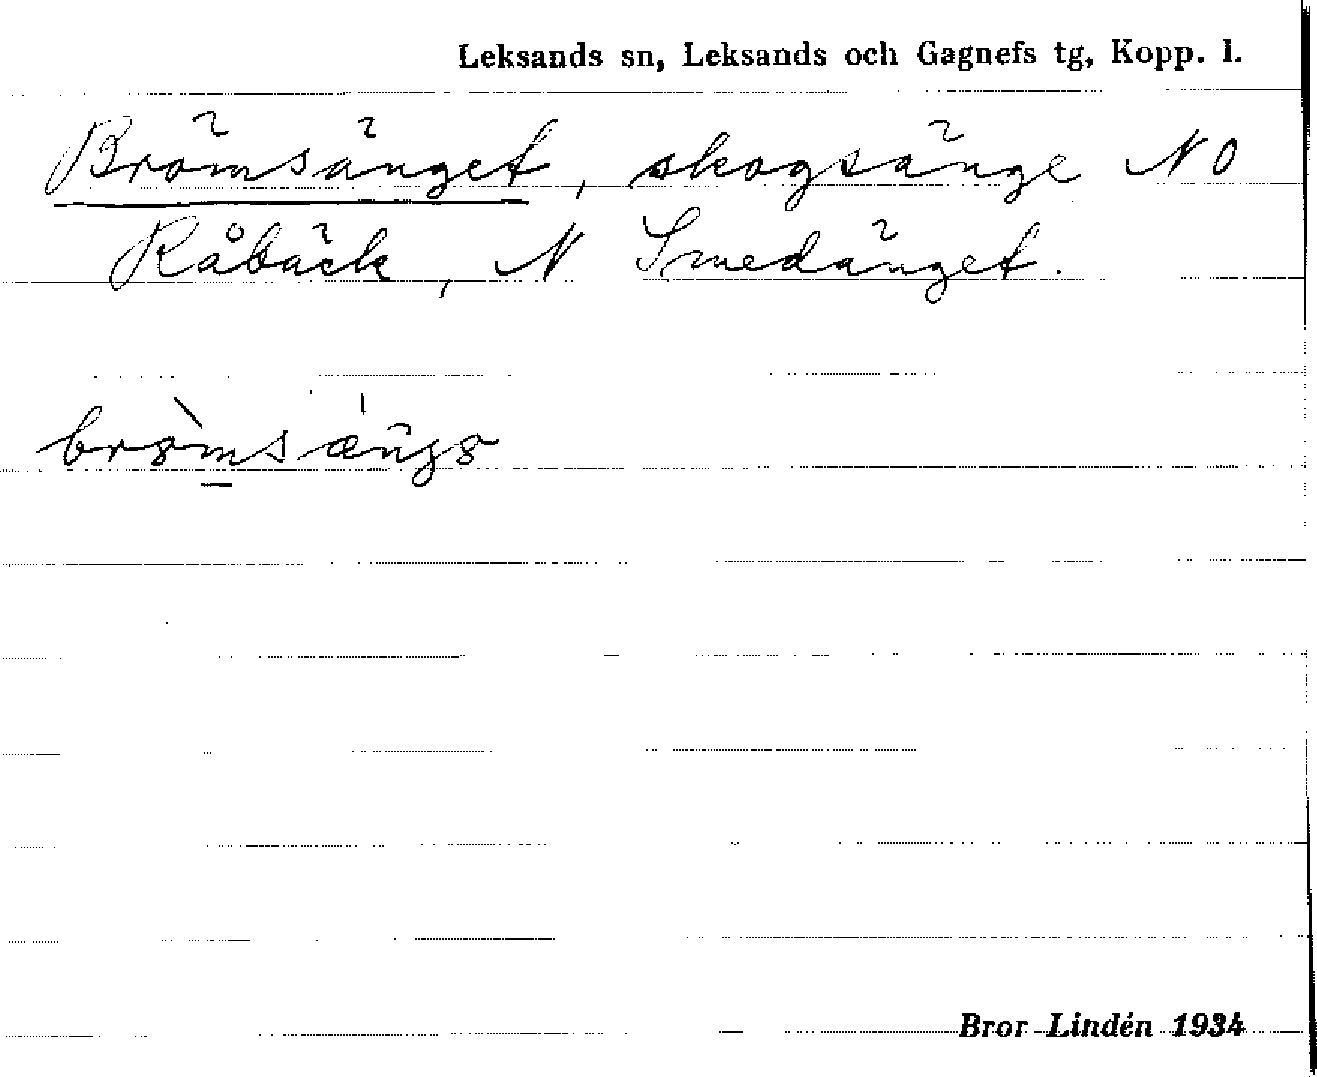 Leksands sn, Leksands och Gagnefs tg, Kopp. l.
Brömsänget, skogsänge NO
Råbäck, N Smedänget.
Bror Lindén 1934